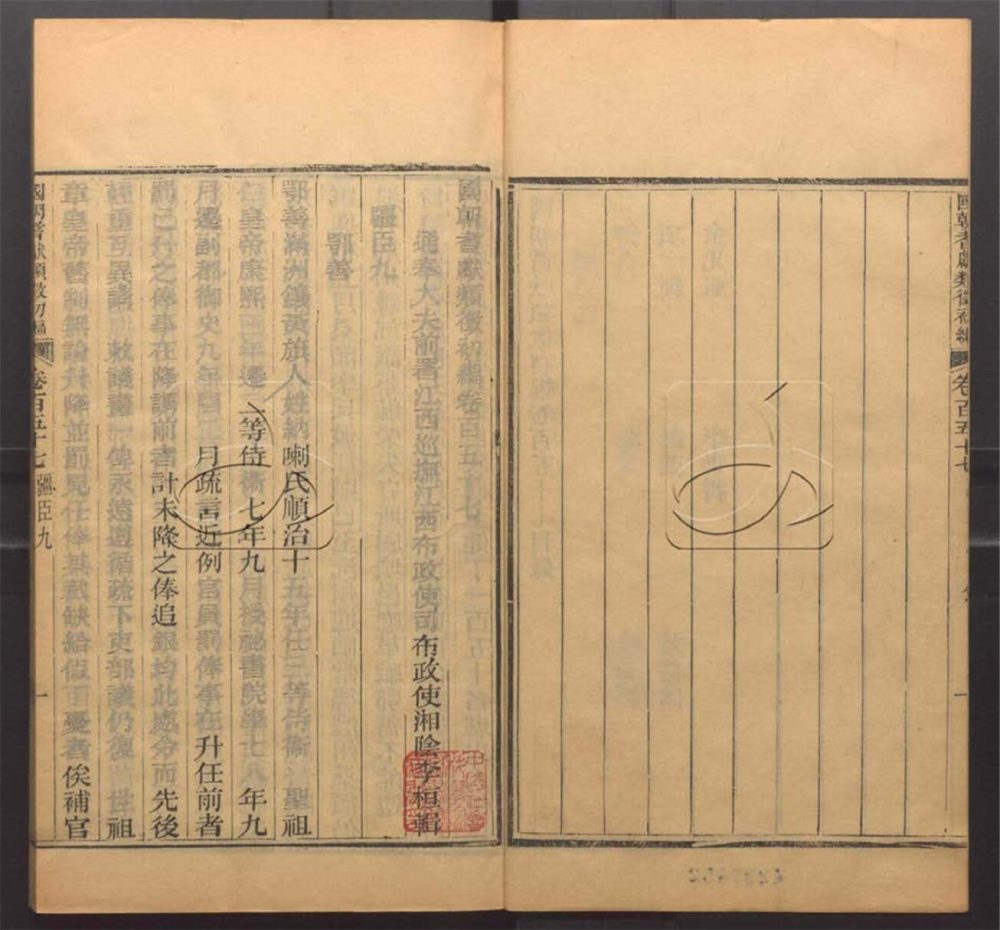 國朝耆獻類徵初編 卷百五十七 一
國朝耆獻類徵初編卷百五十七
通奉大夫前署江西巡撫江西布政使司布政使湘陰李桓輯
疆臣九
鄂善
鄂善滿洲鑲黃旗人姓納喇氏順治十五年任三等侍衛 聖祖
仁皇帝康熙四年遷二等侍衛七年九月授祕書院學士八年九
月遷副都御史九年閏二月疏言近例官員罰俸事在升任前者
罰已升之俸事在降謫前者計未降之俸追銀均此處分而先後
輕重互異請 敕議畫一俾永遠遵循疏下吏部議仍復 世祖
章皇帝舊制無論升降並罰見任俸其裁缺給假丁憂者俟補官
國朝耆獻類徵初編 卷百五十七 疆臣九 一